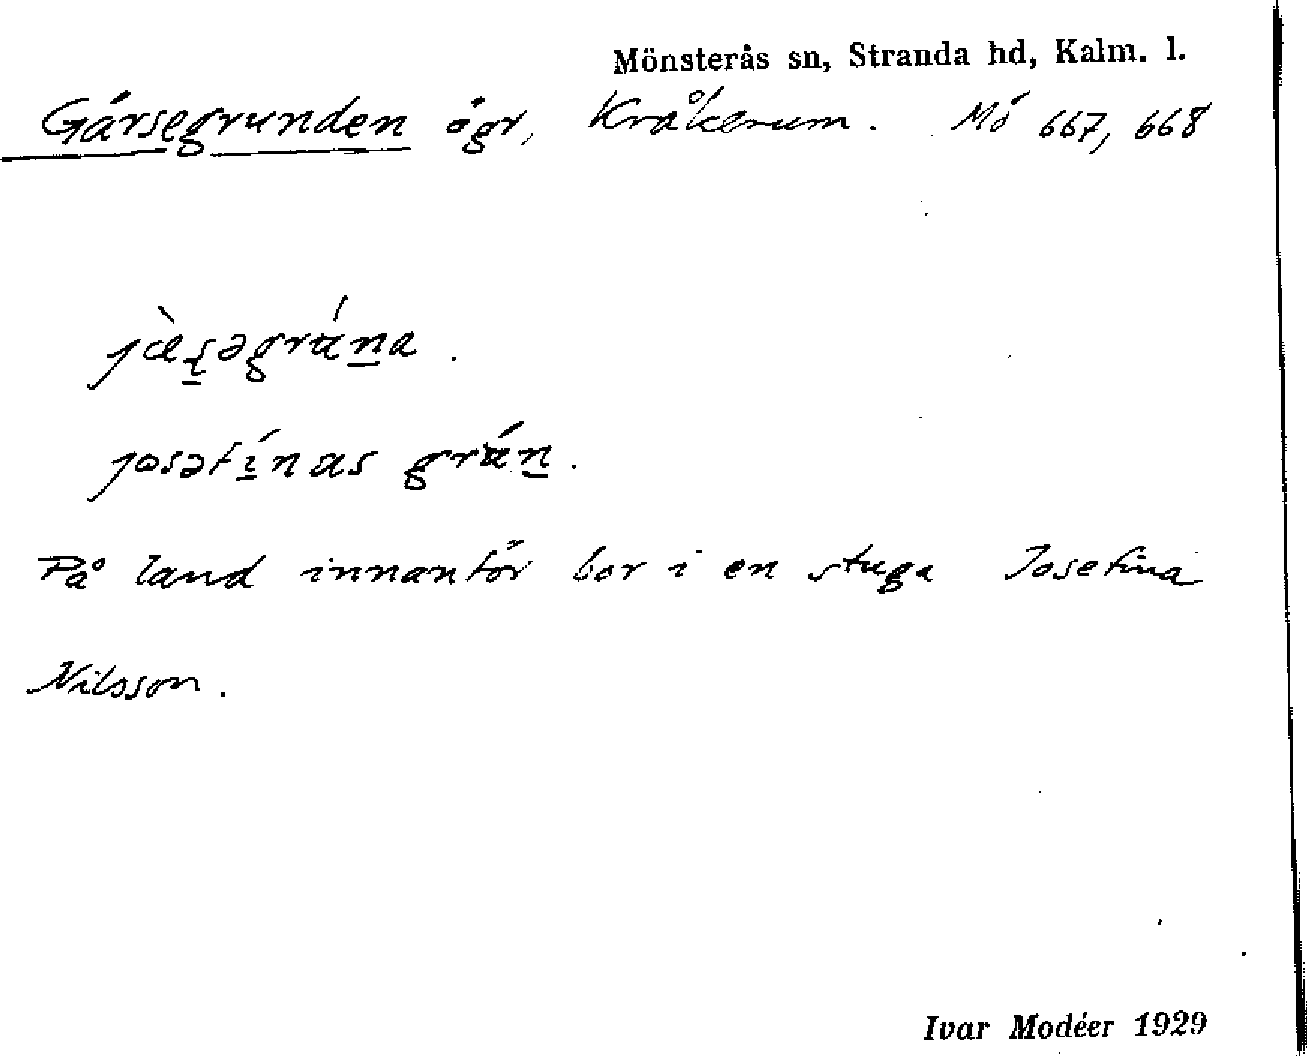 Mönsterås sn, Stranda hd, Kalm. l.
Gärsegrunden ögr, Kråkerum. Mö 667, 668
jæ̀s̲əgrána.
josəfínas grán̲.
På land innanför bor i en stuga Josefina
Nilsson.
Ivar Modéer 1929